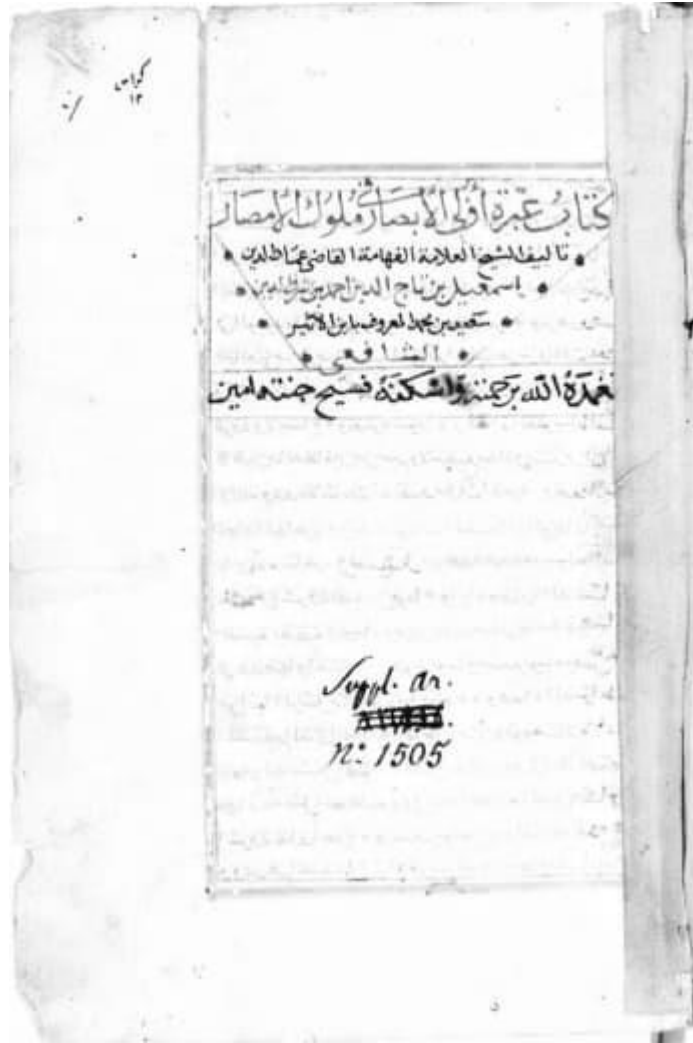 كراس
١٣
كتاب عبرة أولى الأبصار فى ملوك الأمصار
تاليف الشيخ العلامة الفهامة القاضى عماد الدين
اسمعيل بن تاج الدين احمد بن
سعيد بن محمد المعروف بابن الاثير
الشافعى
تغمده الله برحمته وأسكنه فسيح جنته امين
Suppl. ar.
n.º 1505